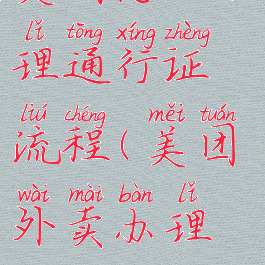 lǐ tōng xíng zhèng
理通行证
liú chéng měi tuán
流程(美团
wài mài bàn lǐ
外卖办理